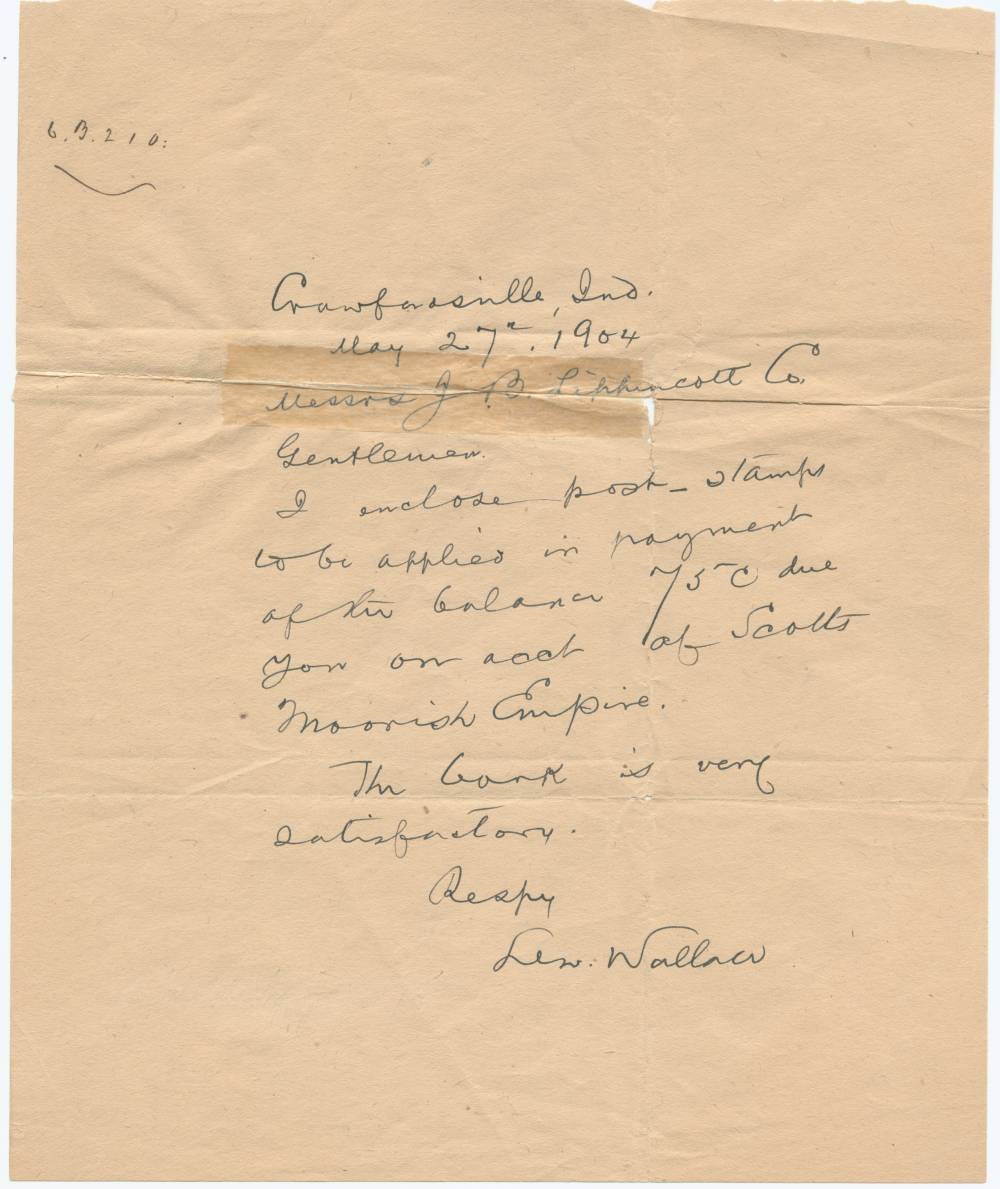 6.B.210:
Crawfordsville, Ind.
May 27th. 1904
Messrs J. B. Lippincott Co.
Gentlemen.
I enclose post-stamps
to be applied in payment
of the balance 75c due
you on acct of Scotts
Moorish Empire.
The book is very
satisfactory.
Respy
Lew. Wallace